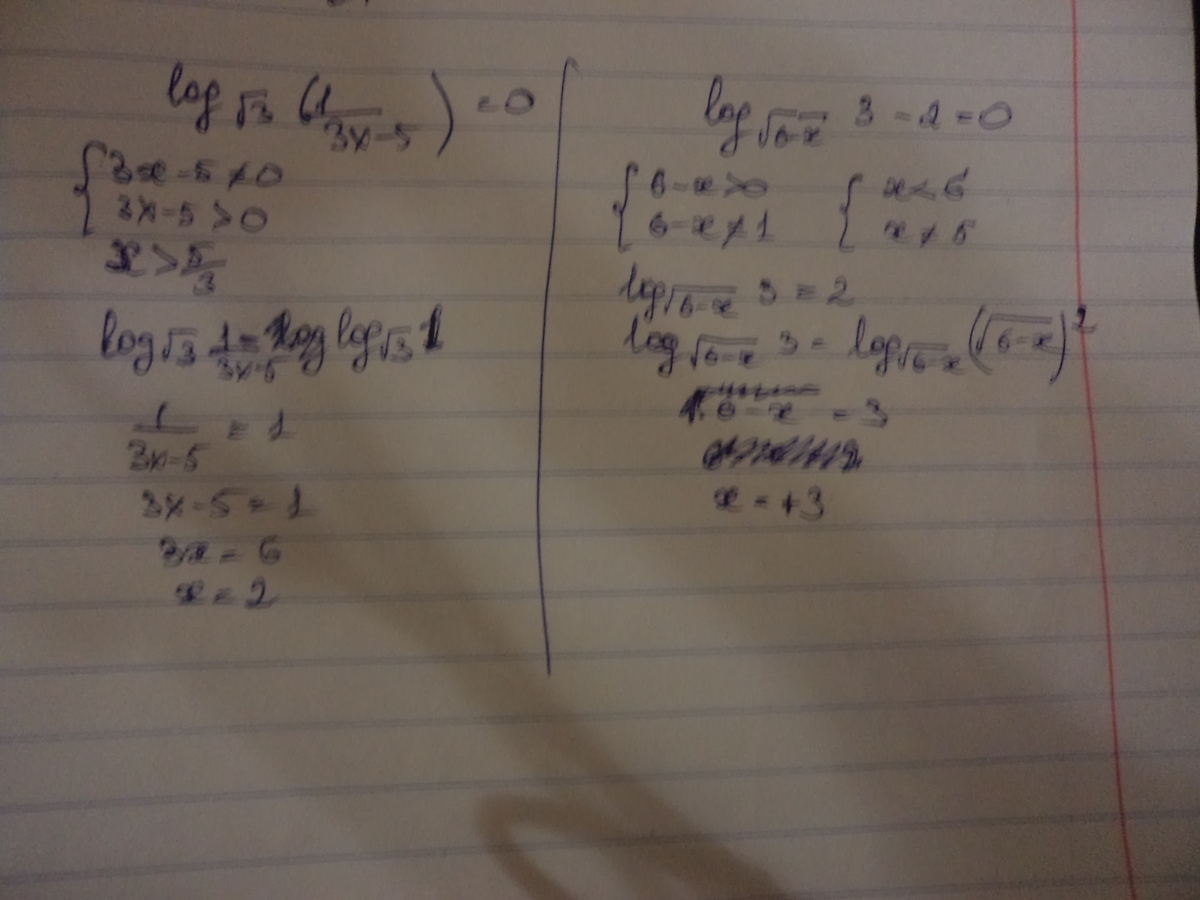 log √3 (1/(3x-5)) = 0
{ 3x-5≠0
3x-5>0
x > 5/3
log √3 1/(3x-5) = log √3 1
1/(3x-5) = 1
3x-5 = 1
3x = 6
x = 2
log √(6-x) 3 - 2 = 0
{ 6-x>0 { x<6
6-x≠1 x≠5
log √(6-x) 3 = 2
log √(6-x) 3 = log √(6-x) (√(6-x))²
6-x = 3
x = +3